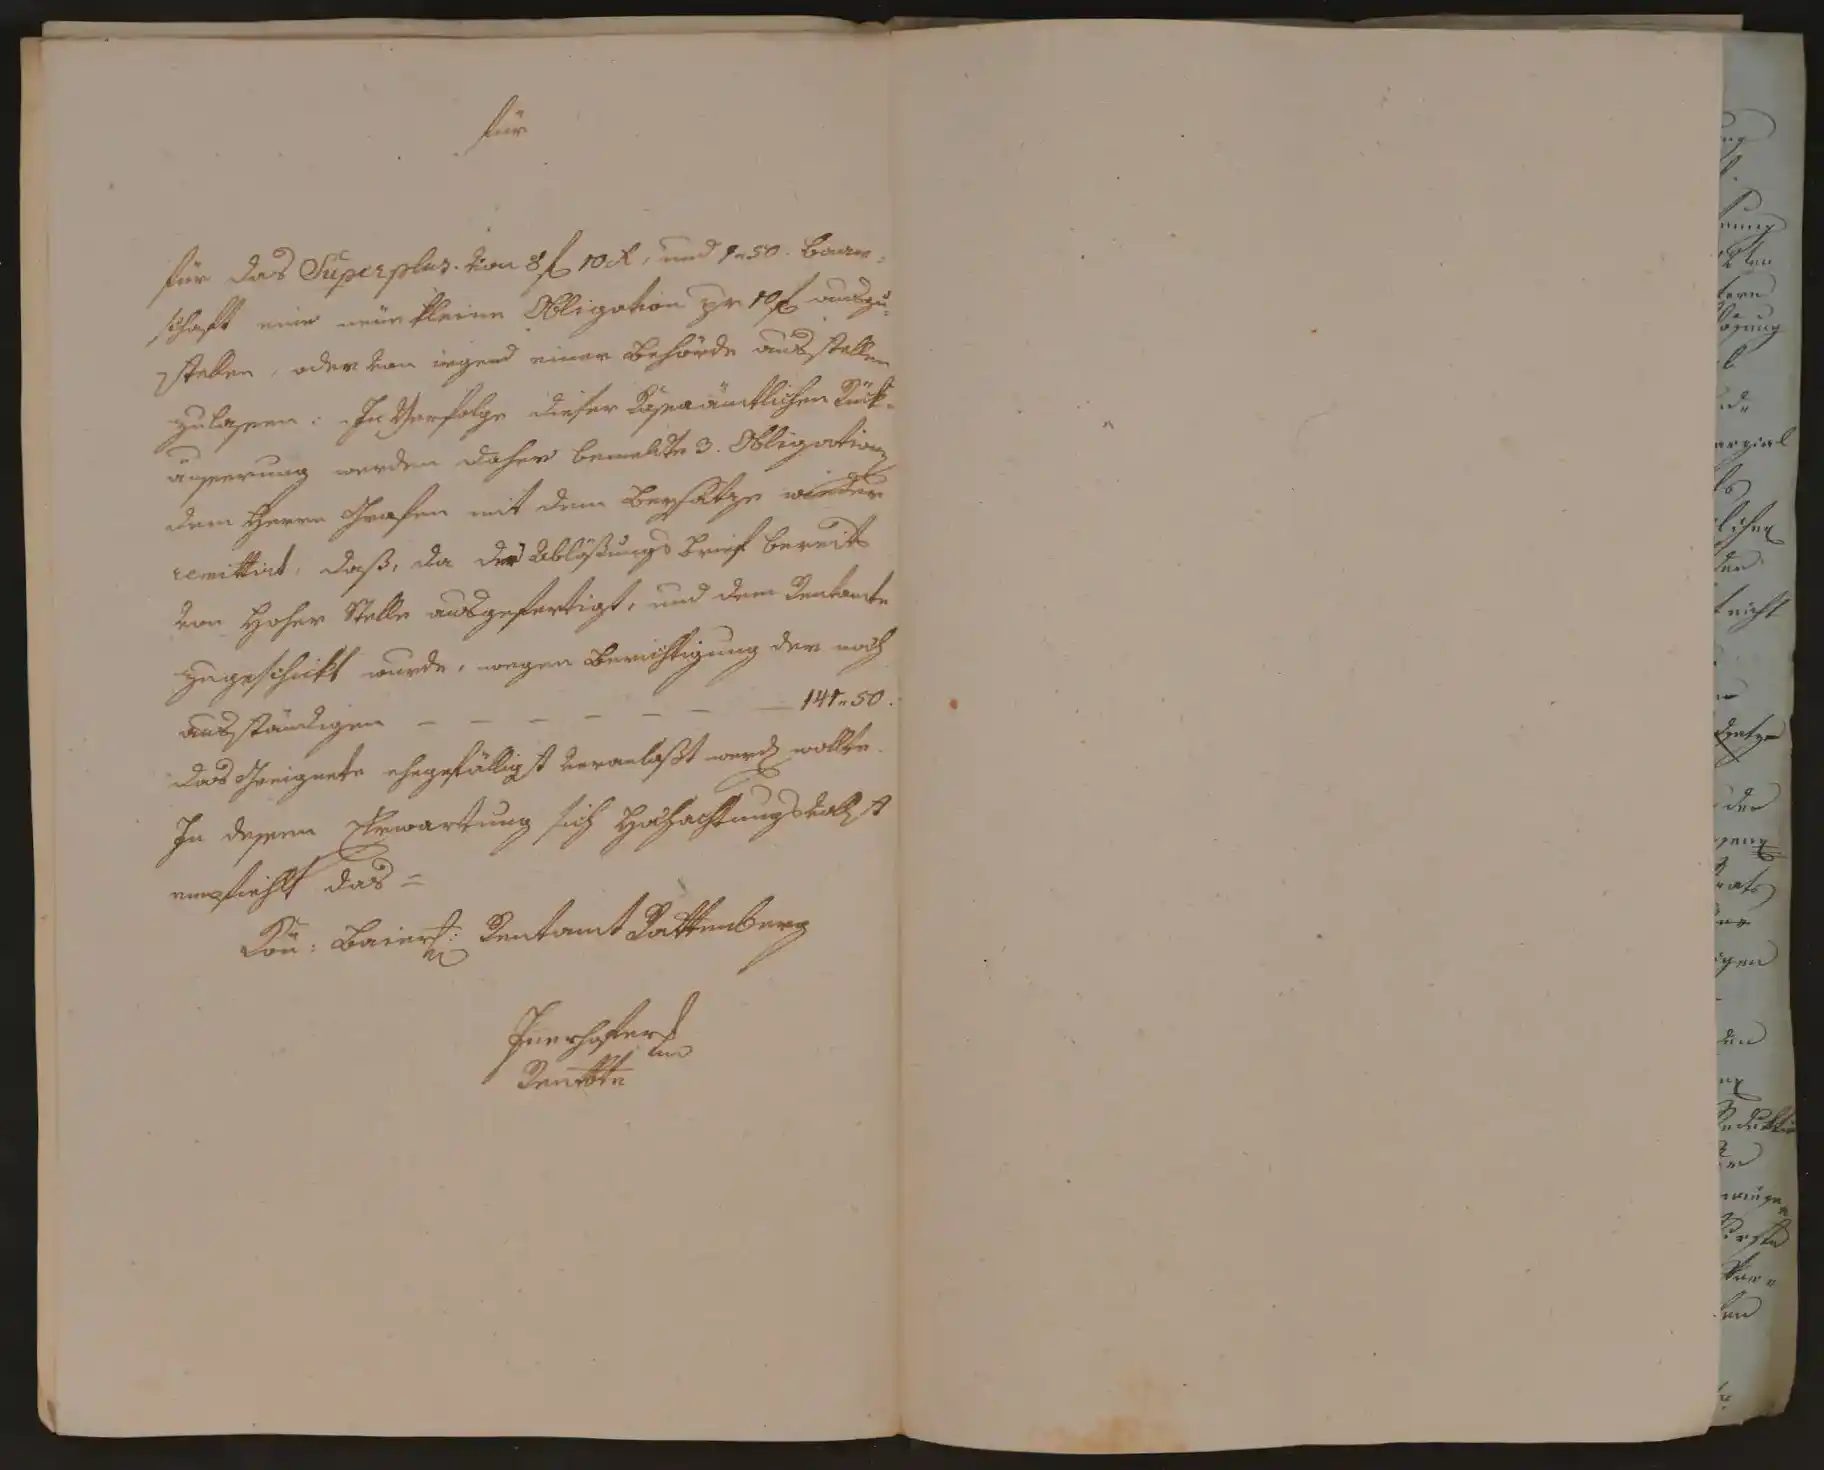 für
für das Superplus von 8 f 10 x, und 1 " 50. Baar-
schaft eine neue kleine Obligation pr 10 f auszu-
stellen, oder von irgend einer Behörde ausstellen
zulassen: In Verfolge dieser Kassaämtlichen Rück-
äusserung werden daher bemeldte 3. Obligationen
dem Herrn Grafen mit dem Beysatze wieder
remittirt, daß, da der Ablößungs Brief bereits
von Hoher Stelle ausgefertigt, und dem Rentamte
zugeschickt wurde, wegen Berichtigung der noch
ausständigen — — — — — — — 141 " 50.
das Geeignete ehegefälligst veranlaßt werden wollte.
In dessen Erwartung sich Hochachtungsvollst
empfiehlt das =
Kön: Baiersch: Rentamt Rattenberg
Innerhofer